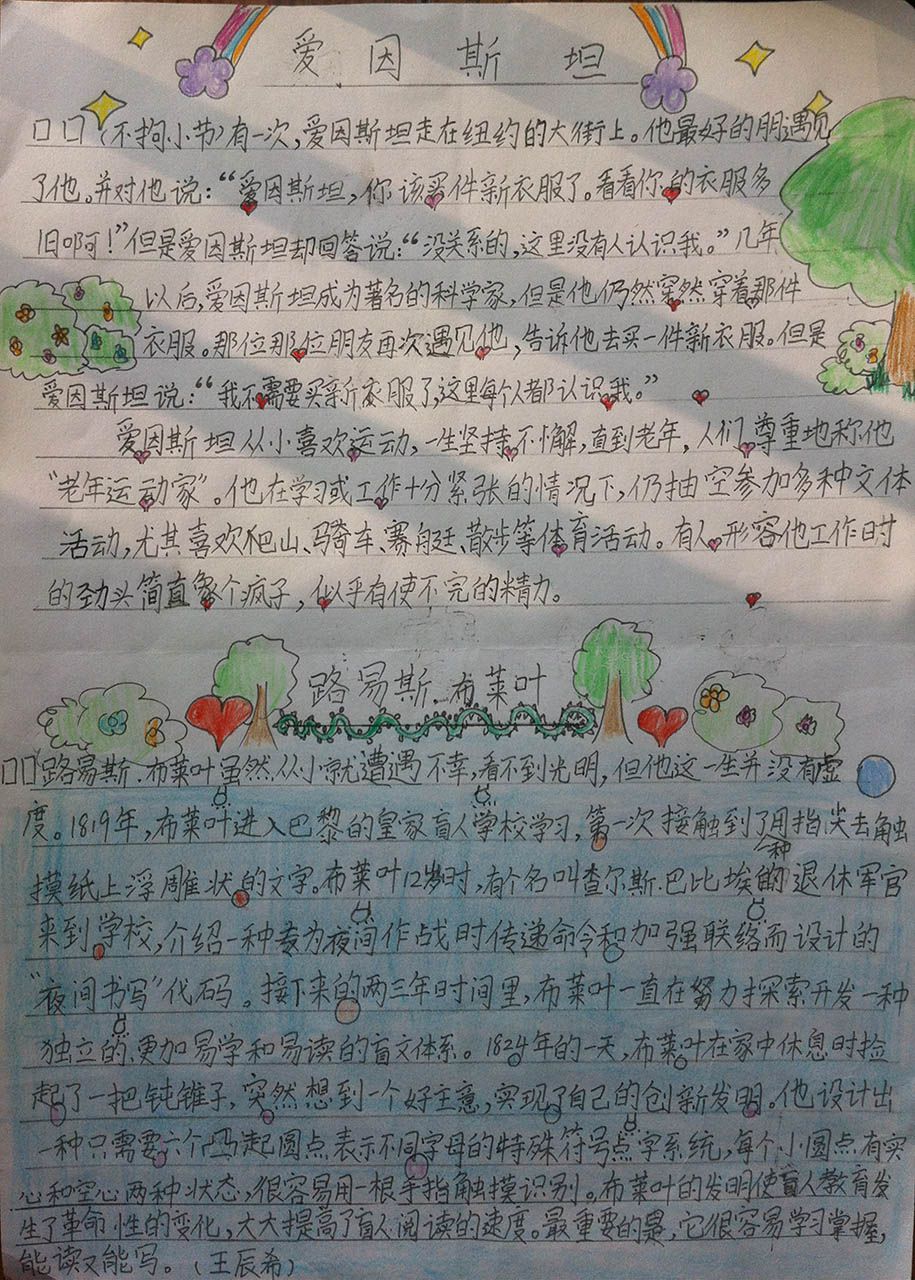 爱因斯坦
口口（不拘小节）有一次，爱因斯坦走在纽约的大街上。他最好的朋遇见
了他。并对他说：“爱因斯坦，你该买件新衣服了。看看你的衣服多
旧啊！”但是爱因斯坦却回答说：“没关系的，这里没有人认识我。”几年
以后，爱因斯坦成为著名的科学家，但是他仍然穿然穿着那件
衣服。那位那位朋友再次遇见他，告诉他去买一件新衣服。但是
爱因斯坦说：“我不需要买新衣服了，这里每个人都认识我。”
爱因斯坦从小喜欢运动，一生坚持不懈，直到老年，人们尊重地称他
“老年运动家”。他在学习或工作十分紧张的情况下，仍抽空参加多种文体
活动，尤其喜欢爬山、骑车、赛艇、散步等体育活动。有人形容他工作时
的劲头简直象个疯子，似乎有使不完的精力。
路易斯.布莱叶
口口路易斯.布莱叶虽然从小就遭遇不幸，看不到光明，但他这一生并没有虚
度。1819年，布莱叶进入巴黎的皇家盲人学校学习，第一次接触到了用指尖去触
摸纸上浮雕状的文字。布莱叶12岁时，有个名叫查尔斯.巴比埃的退休军官
来到学校，介绍一种专为夜间作战时传递命令和加强联络而设计的
“夜间书写”代码。接下来的两三年时间里，布莱叶一直在努力探索开发一种
独立的、更加易学和易读的盲文体系。1824年的一天，布莱叶在家中休息时捡
起了一把钝锥子，突然想到一个好主意，实现了自己的创新发明。他设计出
一种只需要六个凸起圆点表示不同字母的特殊符号点字系统，每个小圆点有实
心和空心两种状态，很容易用一根手指触摸识别。布莱叶的发明使盲人教育发
生了革命性的变化，大大提高了盲人阅读的速度。最重要的是，它很容易学习掌握，
能读又能写。（王辰希）